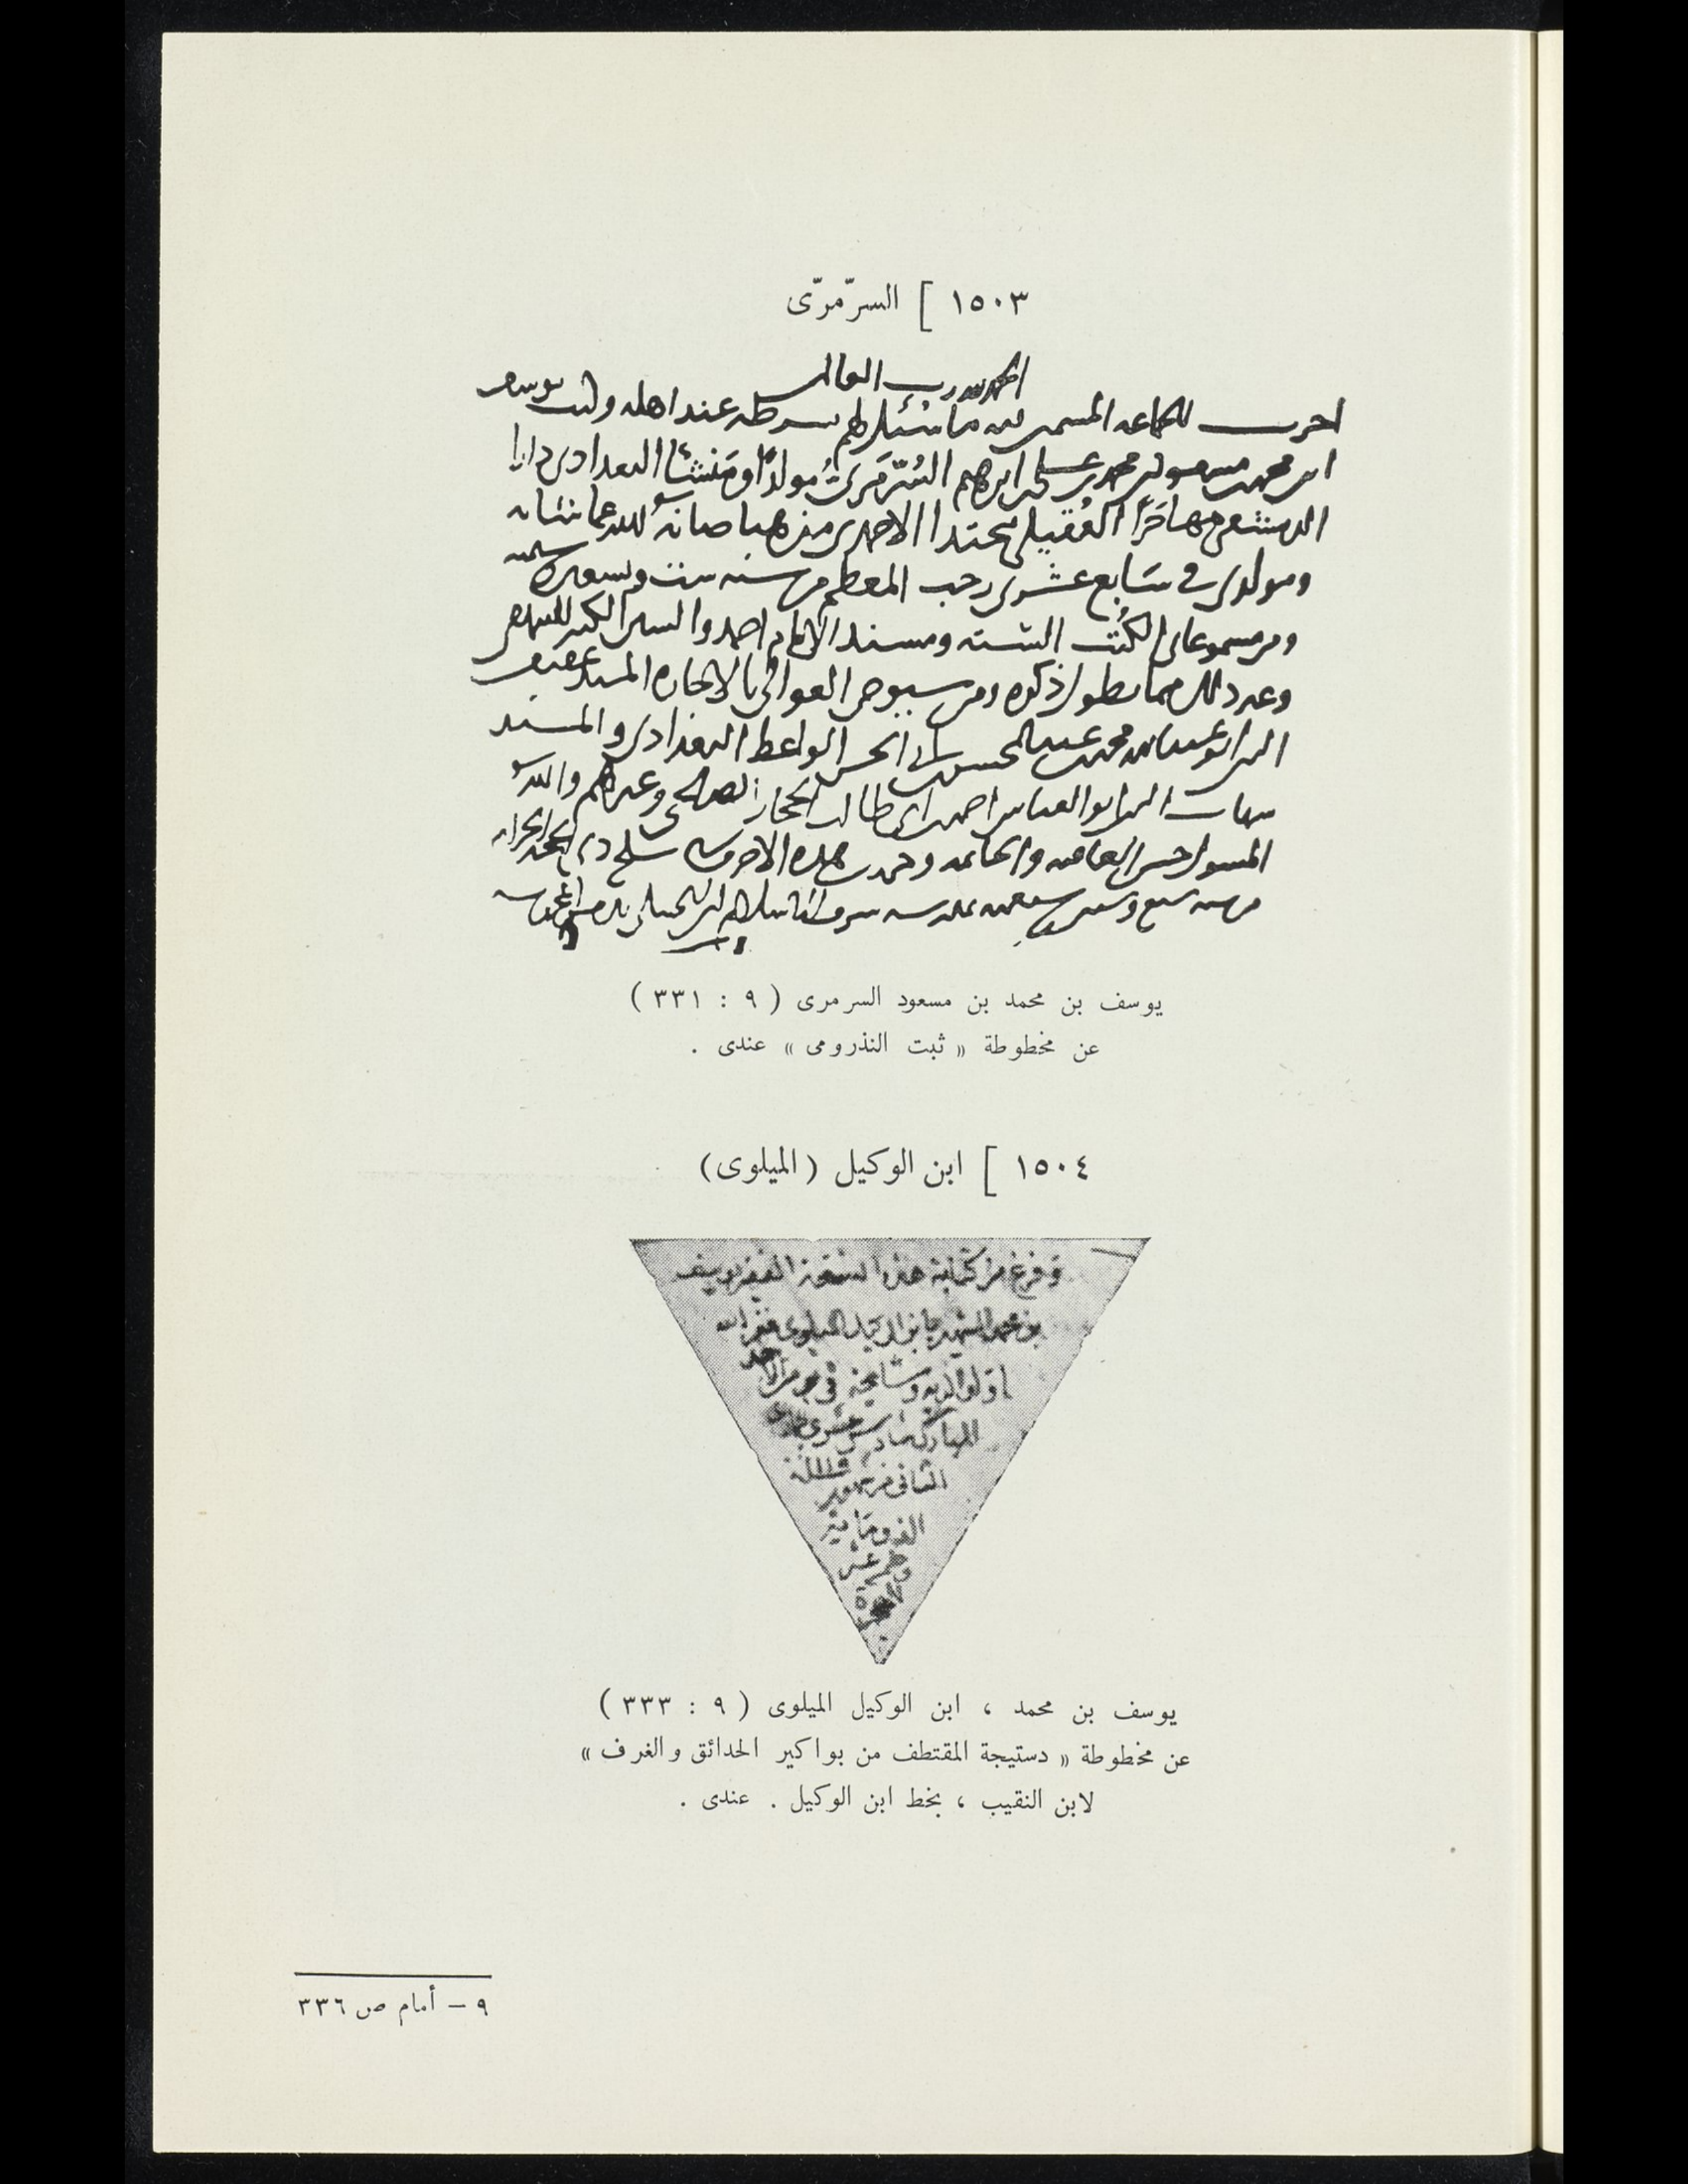 ١٥٠٣ ] السرّمرّى
الحمد لله رب العالمين
اجزت للجماعه المسمين فيه ما سُئل لهم بشرطه عند اهله وكتب يوسف
ابن محمد بن مسعود بن محمد بن علي بن ابرهيم السُرّمَرّيُ مولدًا ومَنشئًا البغدادي دارا
الدمشقي مهاجَرًا العُقيلي محتدا الاحمدي مذهبا صانه الله عما شانه
ومولدي في سَابع عشري رجب المعظم من سنه ست وتسعين وستمئه
ومن مسموعاتي الكُتُب الستة ومسند الامام احمد والسنن الكبير للبيهقي
وغير ذلك مما يطول ذكره ومن شيوخي العوالي بالاجازه المسند عفيف
الدين ابو عبد الله محمد بن عبد المحسن بن ابي الحسن الواعظ البغدادي والمسند
شهاب الدين ابو العباس احمد بن ابي طالب الحجار الصالحي وغيرهم والله
المسول حسن العاقبه والخاتمه وحرر هذه الاحرف في سلخ ذي الحجه الحرام
من سنه سبع وستين وسبعمئه بمدرسه شرف الاسلام ابن الحنبلي بدمشق المحروسه
يوسف بن محمد بن مسعود السرمرى ( ٩ : ٣٣١ )
عن مخطوطة « ثبت النذرومى » عندى .
١٥٠٤ ] ابن الوكيل (الميلوى)
وفرغ من كتابة هذه النسخة الفقير يوسف
بن محمد الشهير بابن الوكيل الميلوى غفر الله
له ولوالديه ومشايخه في يوم الاحد
المبارك سادس عشري جمادى
الثاني من شهور سنة
الف ومايه
وتسع عشر
للهجرة
يوسف بن محمد ، ابن الوكيل الميلوى ( ٩ : ٣٣٣ )
عن مخطوطة « دستيجة المقتطف من بواكير الحدائق والغرف »
لابن النقيب ، بخط ابن الوكيل . عندى .
٩ – أمام ص ٣٣٦